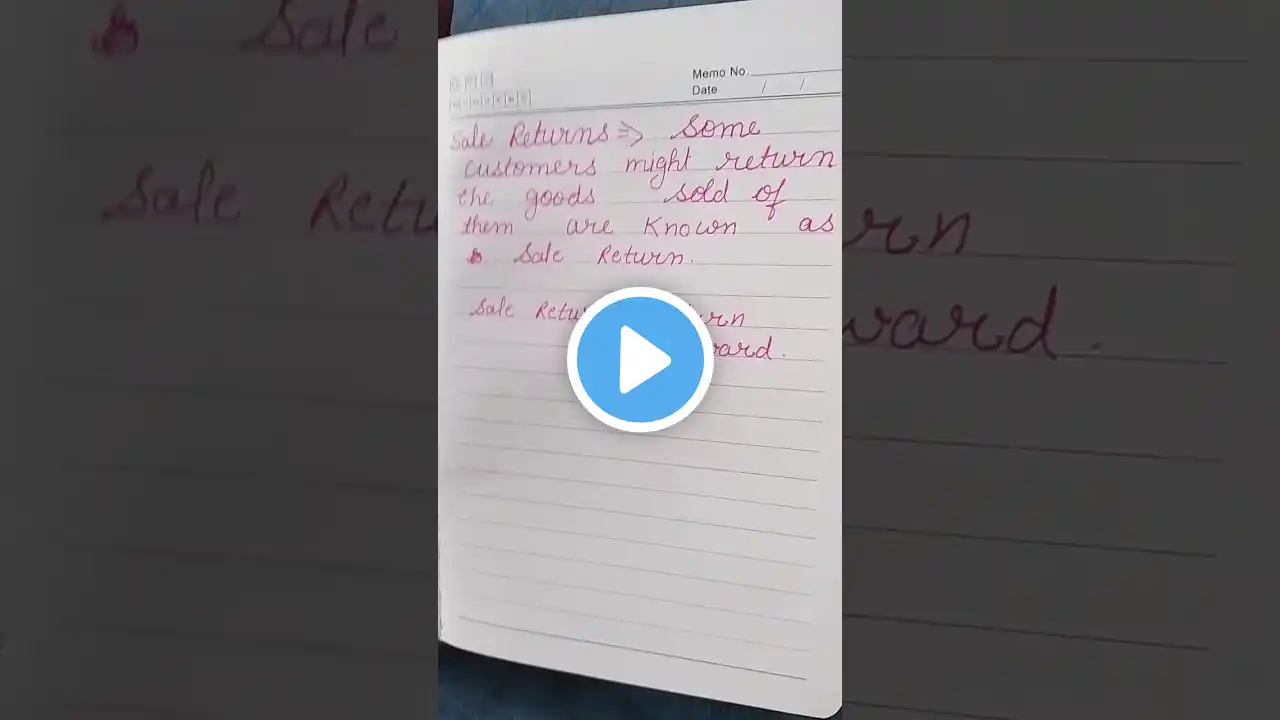 Memo No.
Date / /
Sale Returns ⇒ Some
customers might return
the goods sold of
them are known as
Sale Return.
Sale Retu rn
ward.